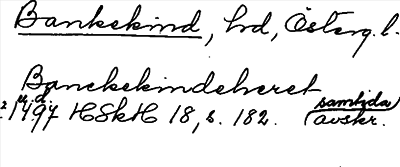 Bankekind, hd, Österg.l.
Banckekindeheret
u.d.
1497 HSkH 18, s. 182. samtida avskr.